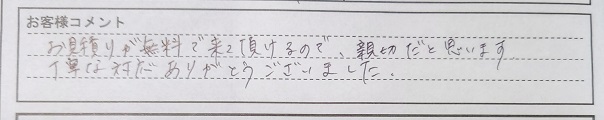 お客様コメント
お見積りが無料で来て頂けるので、親切だと思います
丁寧な対応ありがとうございました。